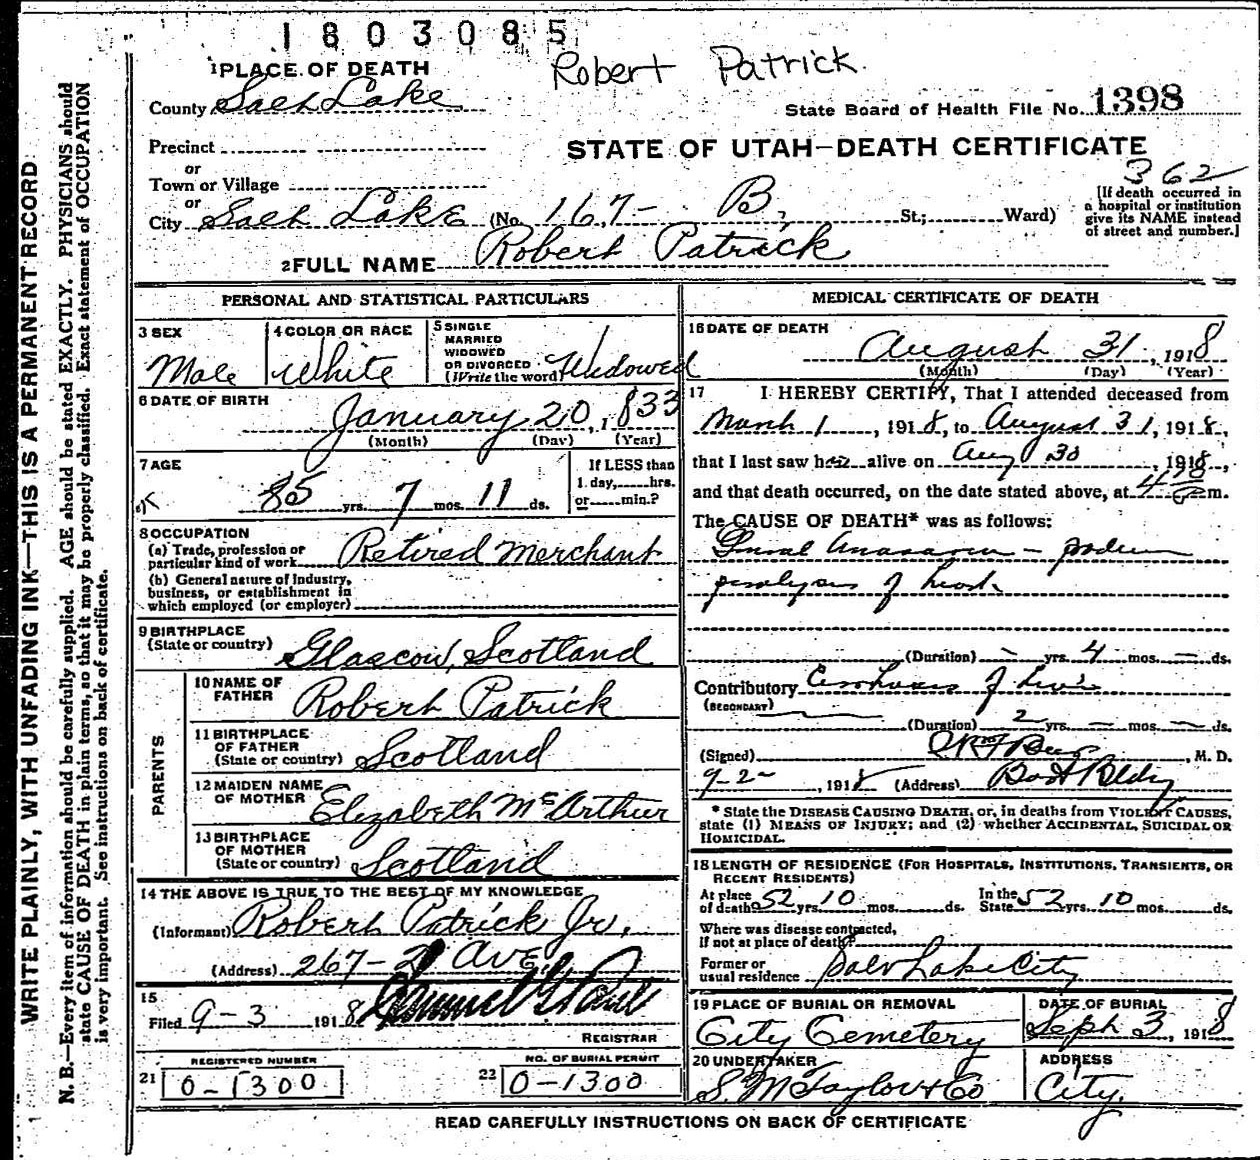 1803085
Robert Patrick.
1 PLACE OF DEATH
County Salt Lake
State Board of Health File No. 1398
Precinct
or
Town or Village
or
City Salt Lake (No. 167- B, St.; Ward)
STATE OF UTAH—DEATH CERTIFICATE
362
[If death occurred in
a hospital or institution
give its NAME instead
of street and number.]
2 FULL NAME Robert Patrick
PERSONAL AND STATISTICAL PARTICULARS
3 SEX
Male
4 COLOR OR RACE
White
5 SINGLE
MARRIED
WIDOWED
OR DIVORCED
(Write the word) Widowed
6 DATE OF BIRTH
January 20, 1833
(Month) (Day) (Year)
7 AGE
85 yrs. 7 mos. 11 ds.
If LESS than
1 day, hrs.
or min.?
8 OCCUPATION
(a) Trade, profession or
particular kind of work Retired Merchant
(b) General nature of Industry,
business, or establishment in
which employed (or employer)
9 BIRTHPLACE
(State or country) Glascow, Scotland
PARENTS
10 NAME OF
FATHER Robert Patrick
11 BIRTHPLACE
OF FATHER
(State or country) Scotland
12 MAIDEN NAME
OF MOTHER Elizabeth McArthur
13 BIRTHPLACE
OF MOTHER
(State or country) Scotland
14 THE ABOVE IS TRUE TO THE BEST OF MY KNOWLEDGE
(Informant) Robert Patrick Jr,
(Address) 267- 2 Ave,
15
Filed 9-3 1918
REGISTRAR
REGISTERED NUMBER
21 0-1300
NO. OF BURIAL PERMIT
22 0-1300
MEDICAL CERTIFICATE OF DEATH
16 DATE OF DEATH
August 31, 1918
(Month) (Day) (Year)
17 I HEREBY CERTIFY, That I attended deceased from
March 1, 1918, to August 31, 1918,
that I last saw him alive on Aug 30, 1918,
and that death occurred, on the date stated above, at m.
The CAUSE OF DEATH* was as follows:
Anasarca
paralysis of heart
(Duration) - yrs. 4 mos. - ds.
Contributory Cirrhosis of liver
(SECONDARY)
(Duration) 2 yrs. - mos. - ds.
(Signed) , M. D.
9-2- , 1918 (Address) Bldg
* State the DISEASE CAUSING DEATH, or, in deaths from VIOLENT CAUSES,
state (1) MEANS OF INJURY; and (2) whether ACCIDENTAL, SUICIDAL OR
HOMICIDAL.
18 LENGTH OF RESIDENCE (FOR HOSPITALS, INSTITUTIONS, TRANSIENTS, OR
RECENT RESIDENTS)
At place
of death 52 yrs. 10 mos. ds.
In the
State 52 yrs. 10 mos. ds.
Where was disease contracted,
if not at place of death?
Former or
usual residence Salt Lake City
19 PLACE OF BURIAL OR REMOVAL
City Cemetery
DATE OF BURIAL
Sept 3, 1918
20 UNDERTAKER
S. M. Taylor & Co
ADDRESS
City.
READ CAREFULLY INSTRUCTIONS ON BACK OF CERTIFICATE
WRITE PLAINLY, WITH UNFADING INK—THIS IS A PERMANENT RECORD
N. B.—Every item of information should be carefully supplied. AGE should be stated EXACTLY. PHYSICIANS should
state CAUSE OF DEATH in plain terms, so that it may be properly classified. Exact statement of OCCUPATION
is very important. See instructions on back of certificate.